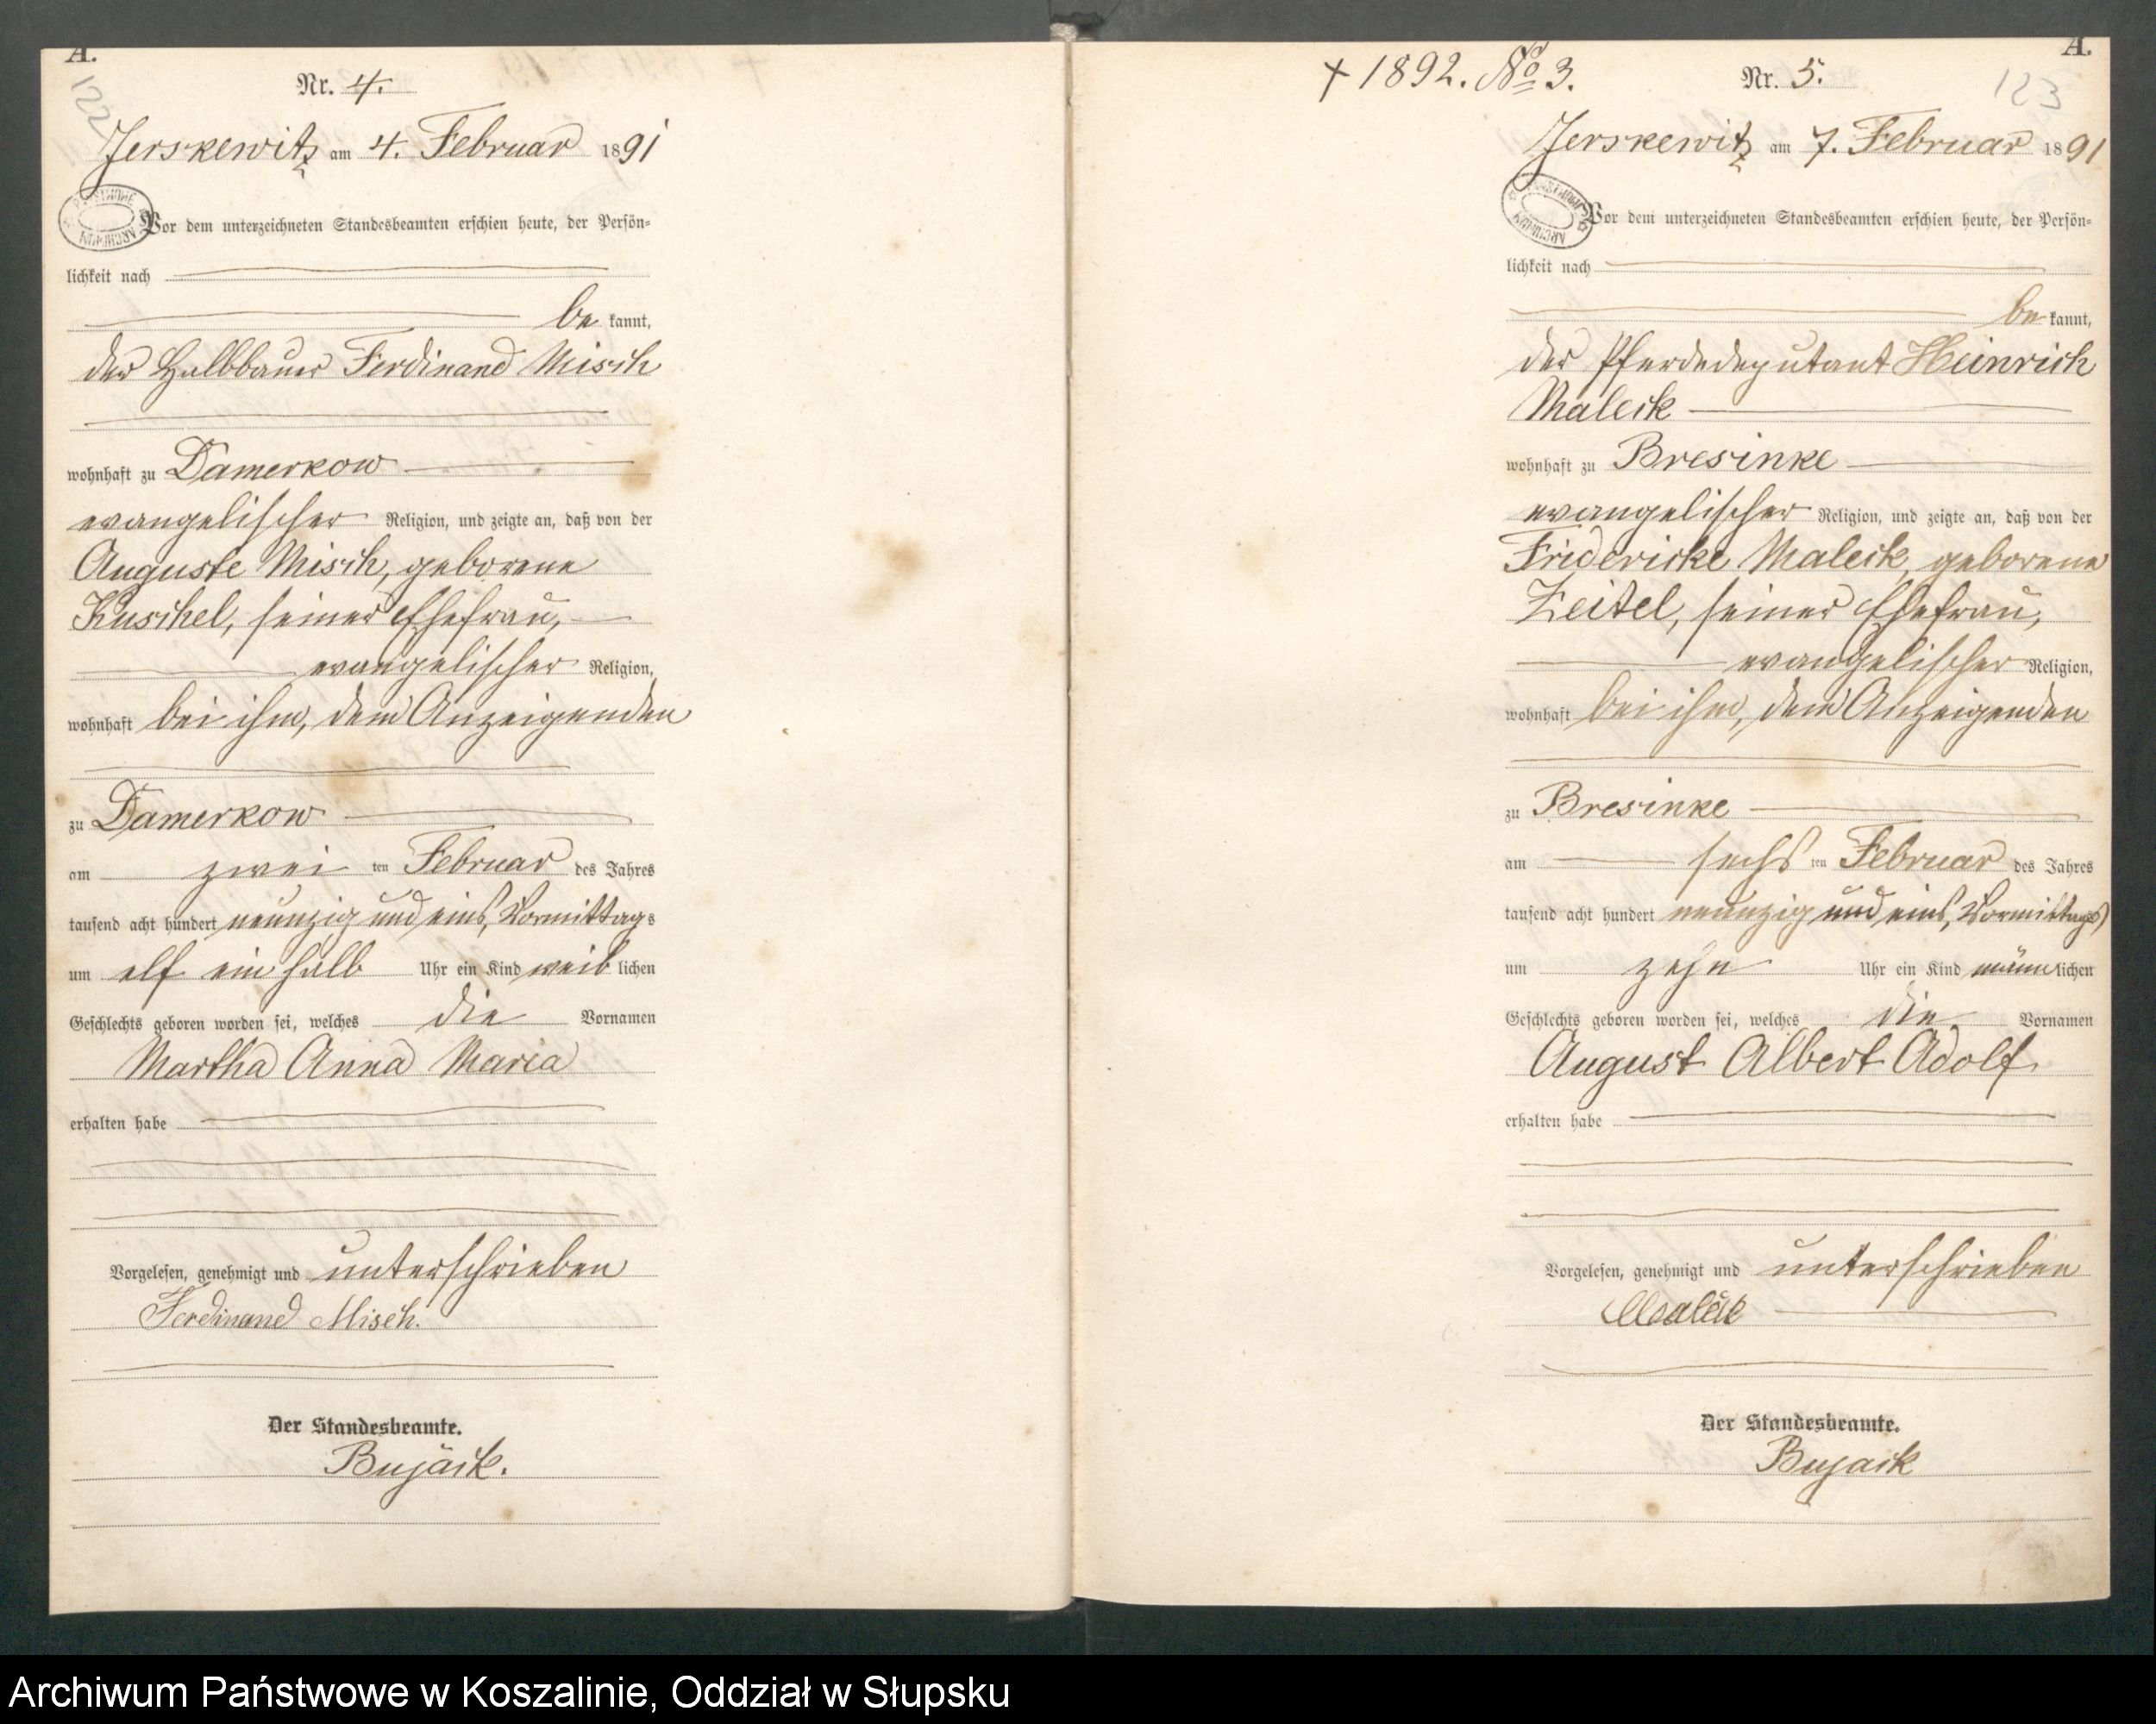 A.
122
Nr. 4.
Jerskewitz am 4. Februar 1891
Vor dem unterzeichneten Standesbeamten erschien heute, der Persön-
lichkeit nach
be kannt,
der Halbbauer Ferdinand Misch
wohnhaft zu Damerkow
evangelischer Religion, und zeigte an, daß von der
Auguste Misch, geborene
Kuschel, seiner Ehefrau,
evangelischer Religion,
wohnhaft bei ihm, dem Anzeigenden
zu Damerkow
am zwei ten Februar des Jahres
tausend acht hundert neunzig und eins, Vormittags
um elf ein halb Uhr ein Kind weib lichen
Geschlechts geboren worden sei, welches die Vornamen
Martha Anna Maria
erhalten habe
Vorgelesen, genehmigt und unterschrieben
Ferdinand Misch.
Der Standesbeamte.
Bujack.
A.
123
† 1892. No 3.
Nr. 5.
Jerskewitz am 7. Februar 1891
Vor dem unterzeichneten Standesbeamten erschien heute, der Persön-
lichkeit nach
be kannt,
der Pferdedeputant Heinrich
Maleck
wohnhaft zu Bresinke
evangelischer Religion, und zeigte an, daß von der
Fridericke Maleck, geborene
Zeitel, seiner Ehefrau,
evangelischer Religion,
wohnhaft bei ihm, dem Anzeigenden
zu Bresinke
am sechs ten Februar des Jahres
tausend acht hundert neunzig und eins, Vormittags
um zehn Uhr ein Kind männlichen
Geschlechts geboren worden sei, welches die Vornamen
August Albert Adolf
erhalten habe
Vorgelesen, genehmigt und unterschrieben
Maleck
Der Standesbeamte.
Bujack
Archiwum Państwowe w Koszalinie, Oddział w Słupsku